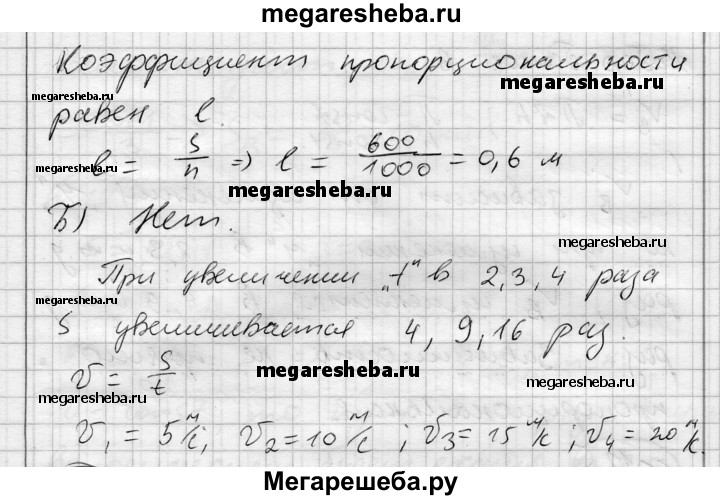 megaresheba.ru
Коэффициент пропорциональности
megaresheba.ru
megaresheba.ru
равен l.
l = S/n => l = 600/1000 = 0,6 м
megaresheba.ru
megaresheba.ru
Б) Нет.
megaresheba.ru
При увеличении „t" в 2, 3, 4 раза
megaresheba.ru
S увеличивается 4, 9, 16 раз.
megaresheba.ru
v = S/t
megaresheba.ru
megaresheba.ru
v₁ = 5 м/с; v₂ = 10 м/с; v₃ = 15 м/с; v₄ = 20 м/с.
Мегарешеба.ру